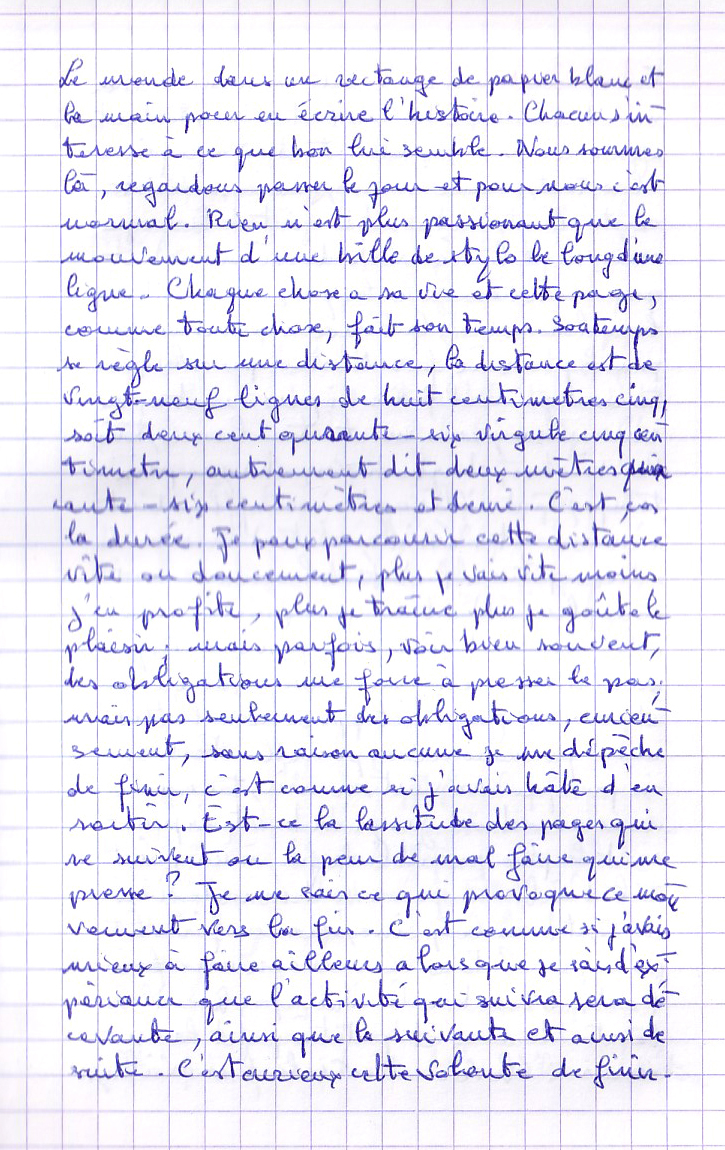 Le monde dans un rectange de papier blanc et
la main pour en écrire l'histoire. Chacun s'in-
teresse à ce que bon lui semble. Nous sommes
là, regardons passer le jour et pour nous c'est
normal. Rien n'est plus passionant que le
mouvement d'une bille de stylo le long d'une
ligne. Chaque chose a sa vie et cette page,
comme toute chose, fait son temps. Son temps
se règle sur une distance, la distance est de
vingt-neuf lignes de huit centimètres cinq,
soit deux cent quarante-six virgule cinq cen
timetre, autrement dit deux mètres quar
ante-six centimètres et demi. C'est ça
la durée. Je peux parcourir cette distance
vite ou doucement, plus je vais vite moins
j'en profite, plus je traîne plus je goûte le
plaisir ; mais parfois, voir bien souvent,
des obligations me force à presser le pas ;
mais pas seulement des obligations, curieu-
sement, sans raison aucune je me dépêche
de finir, c'est comme si j'avais hâte d'en
sortir. Est-ce la lassitude des pages qui
se suivent ou la peur de mal faire qui me
presse ? Je ne sais ce qui provoque ce mou
vement vers la fin. C'est comme si j'avais
mieux à faire ailleurs alors que je sais d'ex-
périance que l'activité qui suivra sera dé-
cevante, ainsi que la suivante et ainsi de
suite. C'est curieux cette volonté de finir.